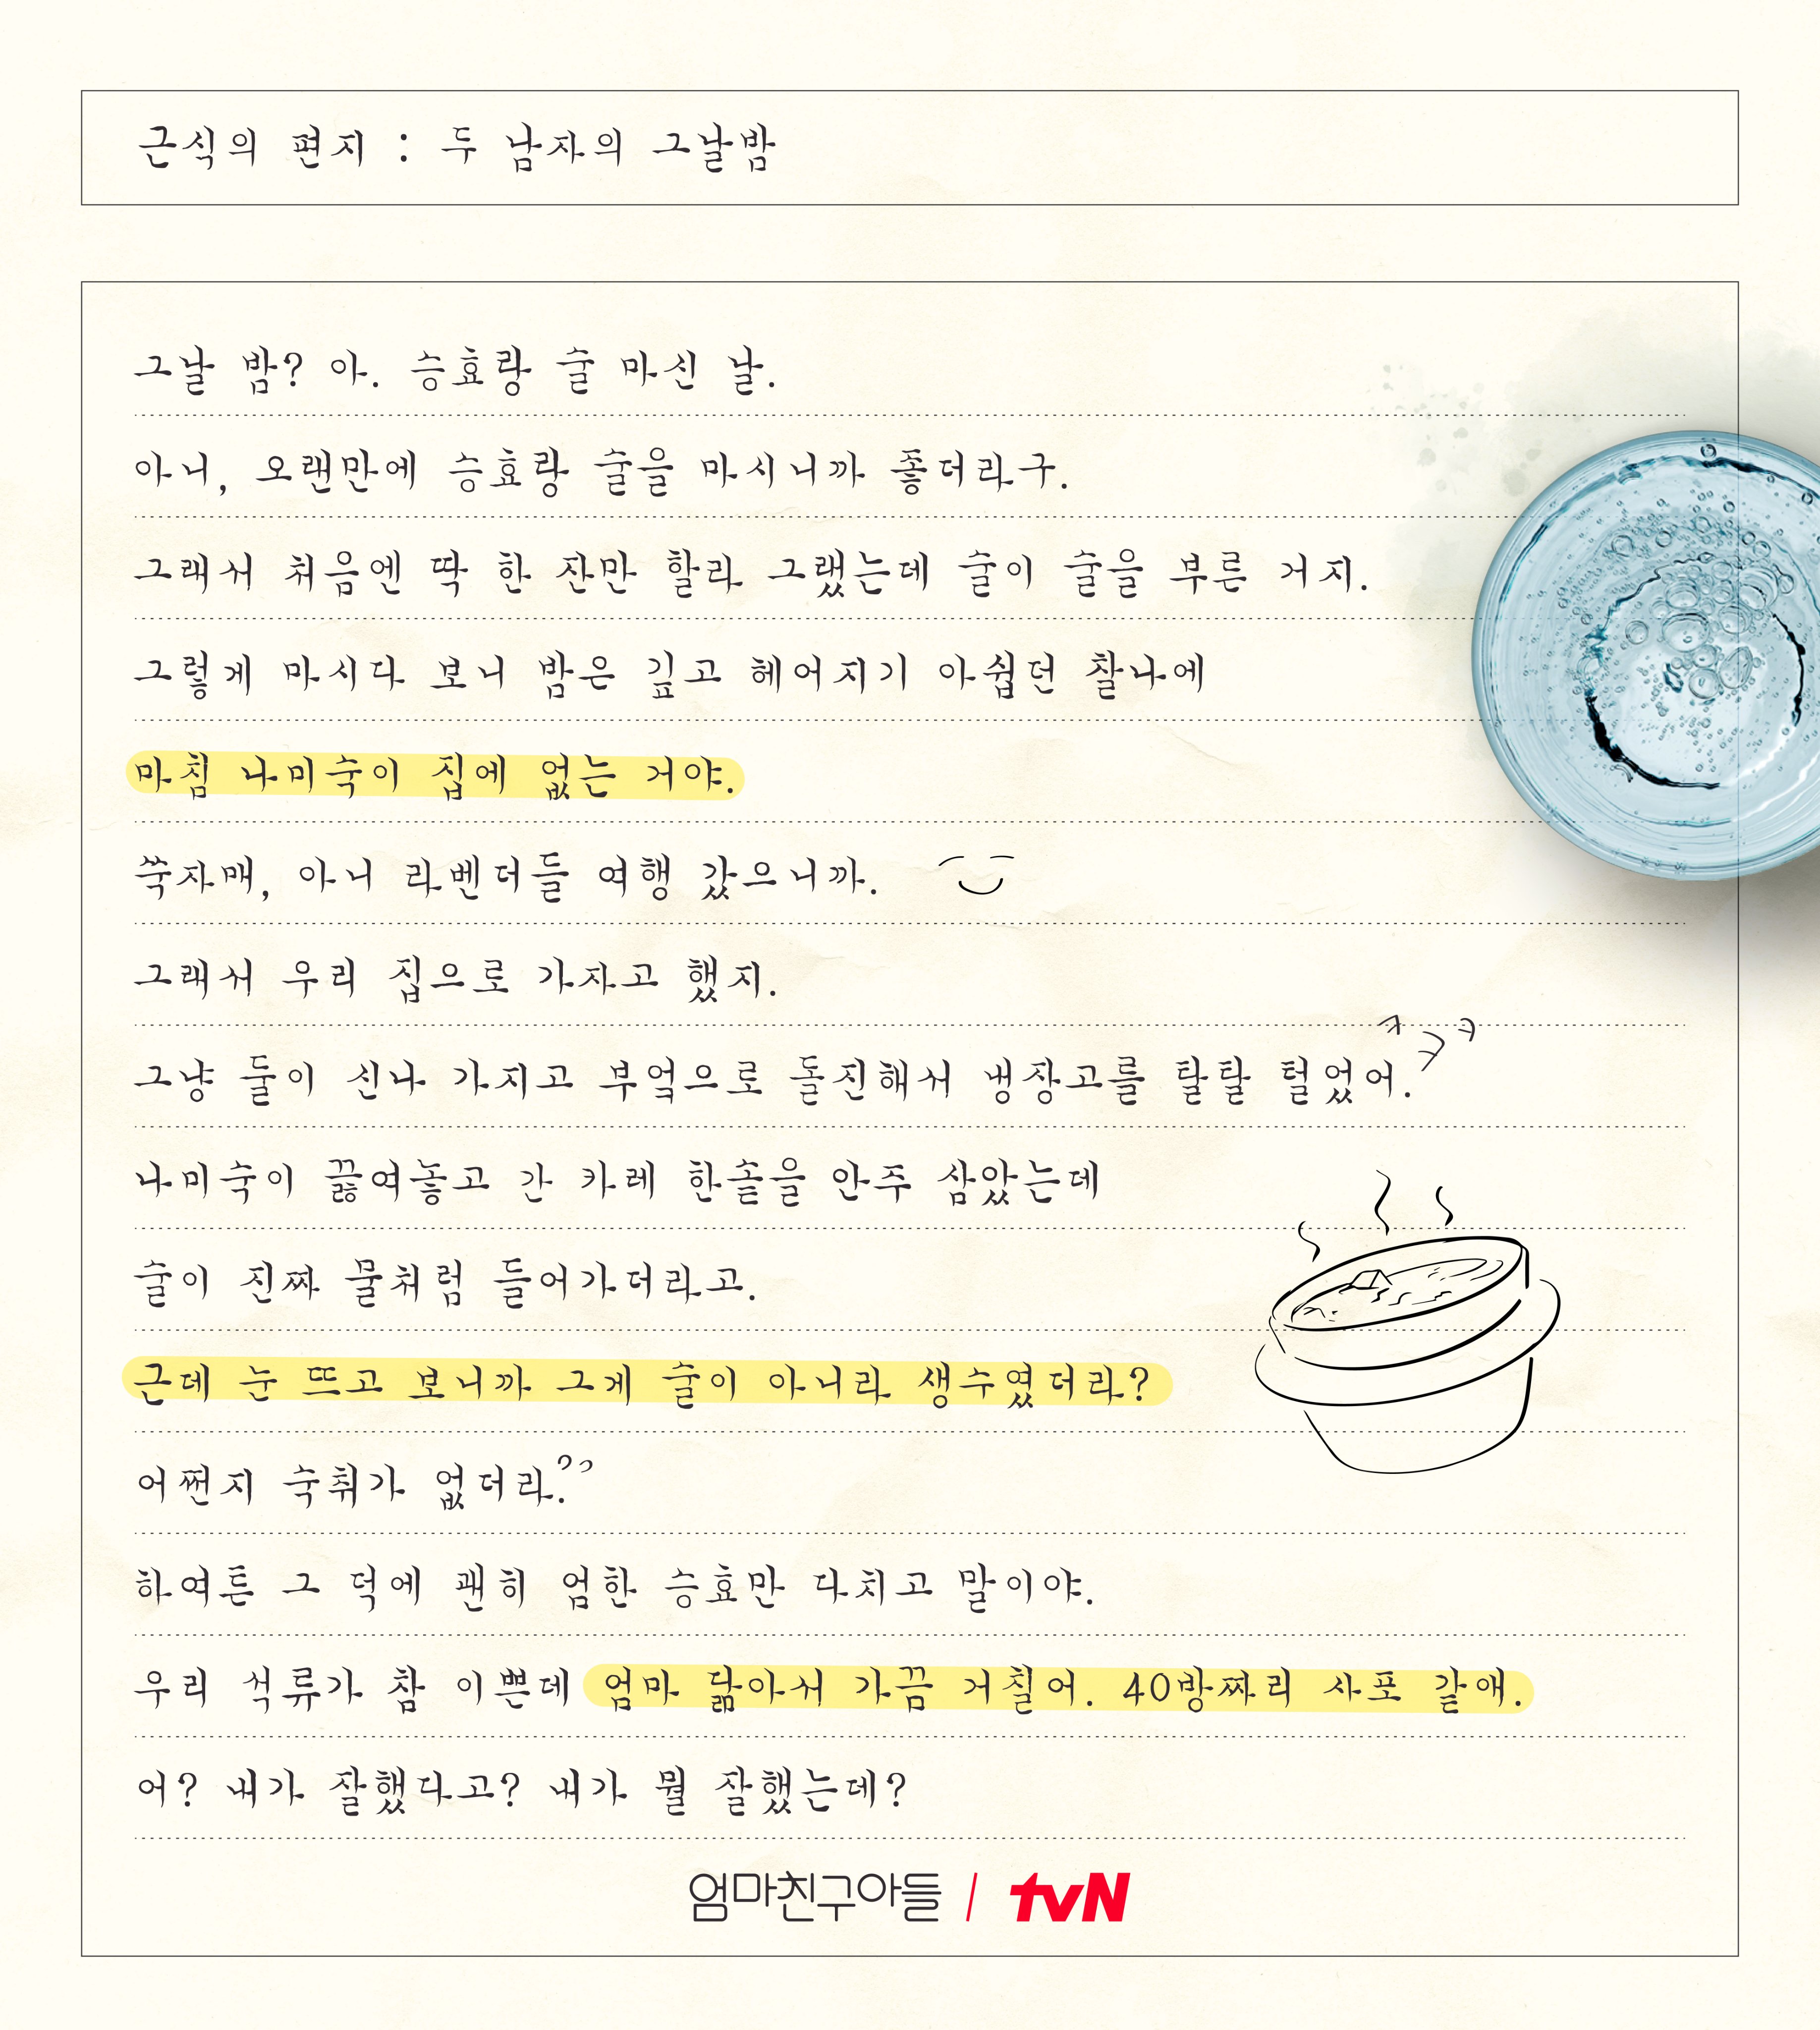 근식의 편지 : 두 남자의 그날밤
그날 밤? 아. 승효랑 술 마신 날.
아니, 오랜만에 승효랑 술을 마시니까 좋더라구.
그래서 처음엔 딱 한 잔만 할라 그랬는데 술이 술을 부른 거지.
그렇게 마시다 보니 밤은 깊고 헤어지기 아쉽던 찰나에
마침 나미숙이 집에 없는 거야.
쑥자매, 아니 라벤더들 여행 갔으니까.
그래서 우리 집으로 가자고 했지.
그냥 둘이 신나 가지고 부엌으로 돌진해서 냉장고를 탈탈 털었어.ㅋㅋㅋ
나미숙이 끓여놓고 간 카레 한솥을 안주 삼았는데
술이 진짜 물처럼 들어가더라고.
근데 눈 뜨고 보니까 그게 술이 아니라 생수였더라?
어쩐지 숙취가 없더라.
하여튼 그 덕에 괜히 엄한 승효만 다치고 말이야.
우리 석류가 참 이쁜데 엄마 닮아서 가끔 거칠어. 40방짜리 사포 같애.
어? 내가 잘했다고? 내가 뭘 잘했는데?
엄마친구아들 / tvN